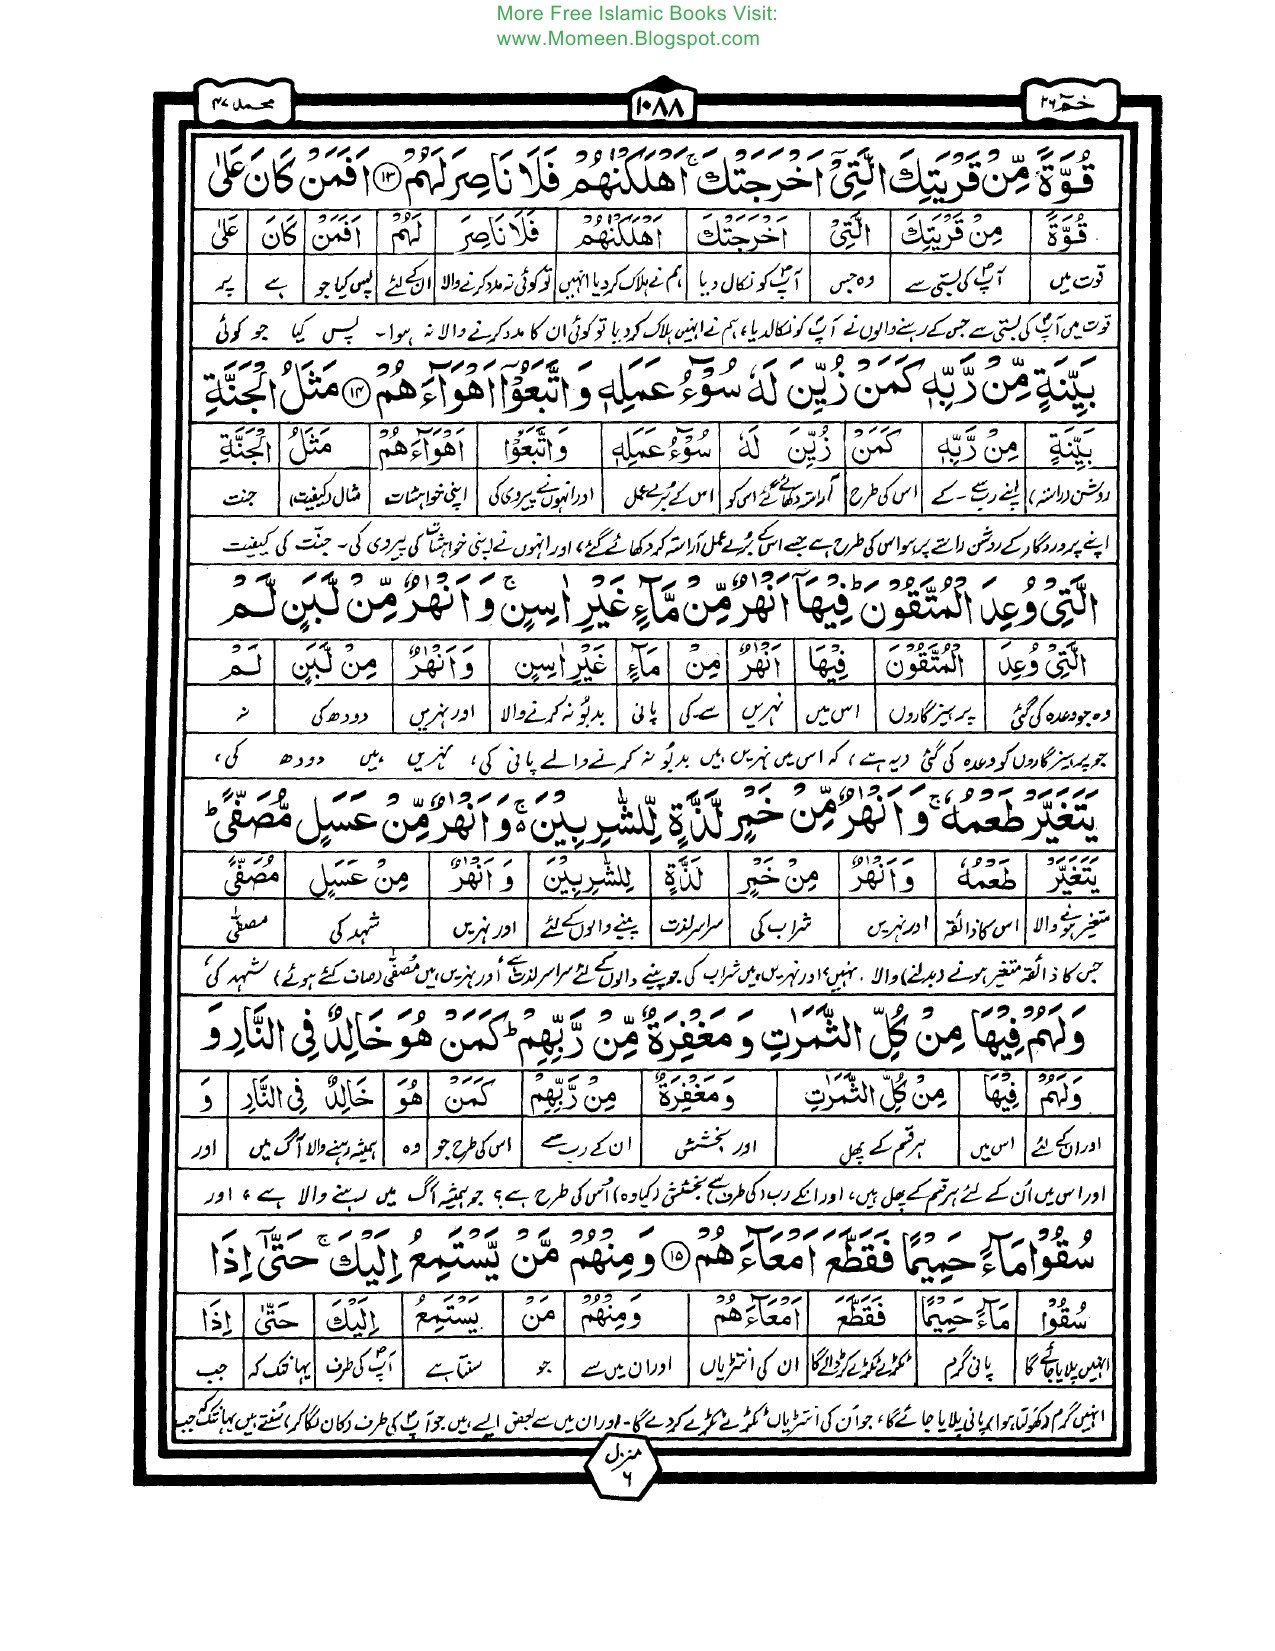 More Free Islamic Books Visit:
www.Momeen.Blogspot.com
حٰمٓ ۲۶
۱۰۸۸
محمد ۴۷
قُوَّةً مِّنْ قَرْيَتِكَ الَّتِیْۤ اَخْرَجَتْكَ ۚ اَهْلَكْنٰهُمْ فَلَا نَاصِرَ لَهُمْ ﴿۱۳﴾ اَفَمَنْ كَانَ عَلٰی
قُوَّةً مِنْ قَرْيَتِكَ الَّتِیْۤ اَخْرَجَتْكَ اَهْلَكْنٰهُمْ فَلَا نَاصِرَ لَهُمْ اَفَمَنْ كَانَ عَلٰی
قوت میں آپؐ کی بستی سے وہ جس آپؐ کو نکال دیا ہم نے ہلاک کر دیا انہیں تو کوئی نہ مدد کرنے والا ان کے لئے پس کیا جو ہے پر
قوت میں آپؐ کی بستی سے جس کے رہنے والوں نے آپؐ کو نکالدیا، ہم نے انہیں ہلاک کر دیا تو کوئی ان کا مدد کرنے والا نہ ہوا۔ پس کیا جو کوئی
بَيِّنَةٍ مِّنْ رَّبِّهٖ كَمَنْ زُيِّنَ لَهٗ سُوْٓءُ عَمَلِهٖ وَ اتَّبَعُوْۤا اَهْوَآءَهُمْ ﴿۱۴﴾ مَثَلُ الْجَنَّةِ
بَيِّنَةٍ مِنْ رَّبِّهٖ كَمَنْ زُيِّنَ لَهٗ سُوْٓءُ عَمَلِهٖ وَاتَّبَعُوْۤا اَهْوَآءَهُمْ مَثَلُ الْجَنَّةِ
روشن (راستہ) اپنے رب سے۔ کے اس کی طرح آراستہ دکھائے گئے اس کو اس کے بُرے عمل اور انہوں نے پیروی کی اپنی خواہشات مثال (کیفیت) جنت
اپنے پروردگار کے روشن راستے پر ہو اس کی طرح ہے جسے اس کے بُرے عمل آراستہ کر دکھائے گئے، اور انہوں نے اپنی خواہشات کی پیروی کی۔ جنّت کی کیفیت
الَّتِیْ وُعِدَ الْمُتَّقُوْنَ ؕ فِيْهَاۤ اَنْهٰرٌ مِّنْ مَّآءٍ غَيْرِ اٰسِنٍ ۚ وَ اَنْهٰرٌ مِّنْ لَّبَنٍ لَّمْ
الَّتِیْ وُعِدَ الْمُتَّقُوْنَ فِيْهَا اَنْهٰرٌ مِنْ مَآءٍ غَيْرِ اٰسِنٍ وَاَنْهٰرٌ مِنْ لَّبَنٍ لَمْ
وہ جو وعدہ کی گئی پرہیزگاروں اس میں نہریں سے۔کی پانی بدبُو نہ کرنے والا اور نہریں دودھ کی نہ
جو پرہیزگاروں کو وعدہ کی گئی دیہ ہے، کہ اس میں نہریں ہیں بدبُو نہ کرنے والے پانی کی، نہریں ہیں دودھ کی،
يَتَغَيَّرْ طَعْمُهٗ ۚ وَ اَنْهٰرٌ مِّنْ خَمْرٍ لَّذَّةٍ لِّلشّٰرِبِيْنَ ۬ۚ وَ اَنْهٰرٌ مِّنْ عَسَلٍ مُّصَفًّی ؕ
يَتَغَيَّرْ طَعْمُهٗ وَاَنْهٰرٌ مِنْ خَمْرٍ لَذَّةٍ لِلشّٰرِبِيْنَ وَ اَنْهٰرٌ مِنْ عَسَلٍ مُصَفًّی
متغیر ہونے والا اس کا ذائقہ اور نہریں شراب کی سراسر لذت پینے والوں کے لئے اور نہریں شہد کی مصفّٰی
جس کا ذائقہ متغیر ہونے (بدلنے) والا نہیں، اور نہریں ہیں شراب کی جو پینے والوں کے لئے سراسر لذت ہے، اور نہریں ہیں مصفّٰی (صاف کئے ہوئے) شہد کی،
وَ لَهُمْ فِيْهَا مِنْ كُلِّ الثَّمَرٰتِ وَ مَغْفِرَةٌ مِّنْ رَّبِّهِمْ ؕ كَمَنْ هُوَ خَالِدٌ فِی النَّارِ وَ
وَلَهُمْ فِيْهَا مِنْ كُلِّ الثَّمَرٰتِ وَمَغْفِرَةٌ مِنْ رَّبِّهِمْ كَمَنْ هُوَ خَالِدٌ فِی النَّارِ وَ
اور ان کے لئے اس میں ہر قسم کے پھل اور بخشش ان کے رب سے اس کی طرح جو وہ ہمیشہ رہنے والا آگ میں اور
اور اس میں اُن کے لئے ہر قسم کے پھل ہیں، اور انکے رب (کی طرف) سے بخشش (کیا وہ) اُس کی طرح ہے؟ جو ہمیشہ آگ میں رہنے والا ہے، اور
سُقُوْا مَآءً حَمِيْمًا فَقَطَّعَ اَمْعَآءَهُمْ ﴿۱۵﴾ وَ مِنْهُمْ مَّنْ يَّسْتَمِعُ اِلَيْكَ ۚ حَتّٰۤی اِذَا
سُقُوْا مَآءً حَمِيْمًا فَقَطَّعَ اَمْعَآءَهُمْ وَمِنْهُمْ مَنْ يَسْتَمِعُ اِلَيْكَ حَتّٰی اِذَا
انہیں پلایا جائے گا پانی گرم ٹکڑے ٹکڑے کر ڈالے گا ان کی انتڑیاں اور ان میں سے جو سنتا ہے آپؐ کی طرف یہانتک کہ جب
انہیں گرم (کھولتا ہوا) پانی پلایا جائے گا، جو اُن کی انتڑیاں ٹکڑے ٹکڑے کر دے گا۔ اور ان میں سے بعض ایسے ہیں جو آپؐ کی طرف (کان لگا کر) سُنتے ہیں یہانتک کہ جب
منزل
۶